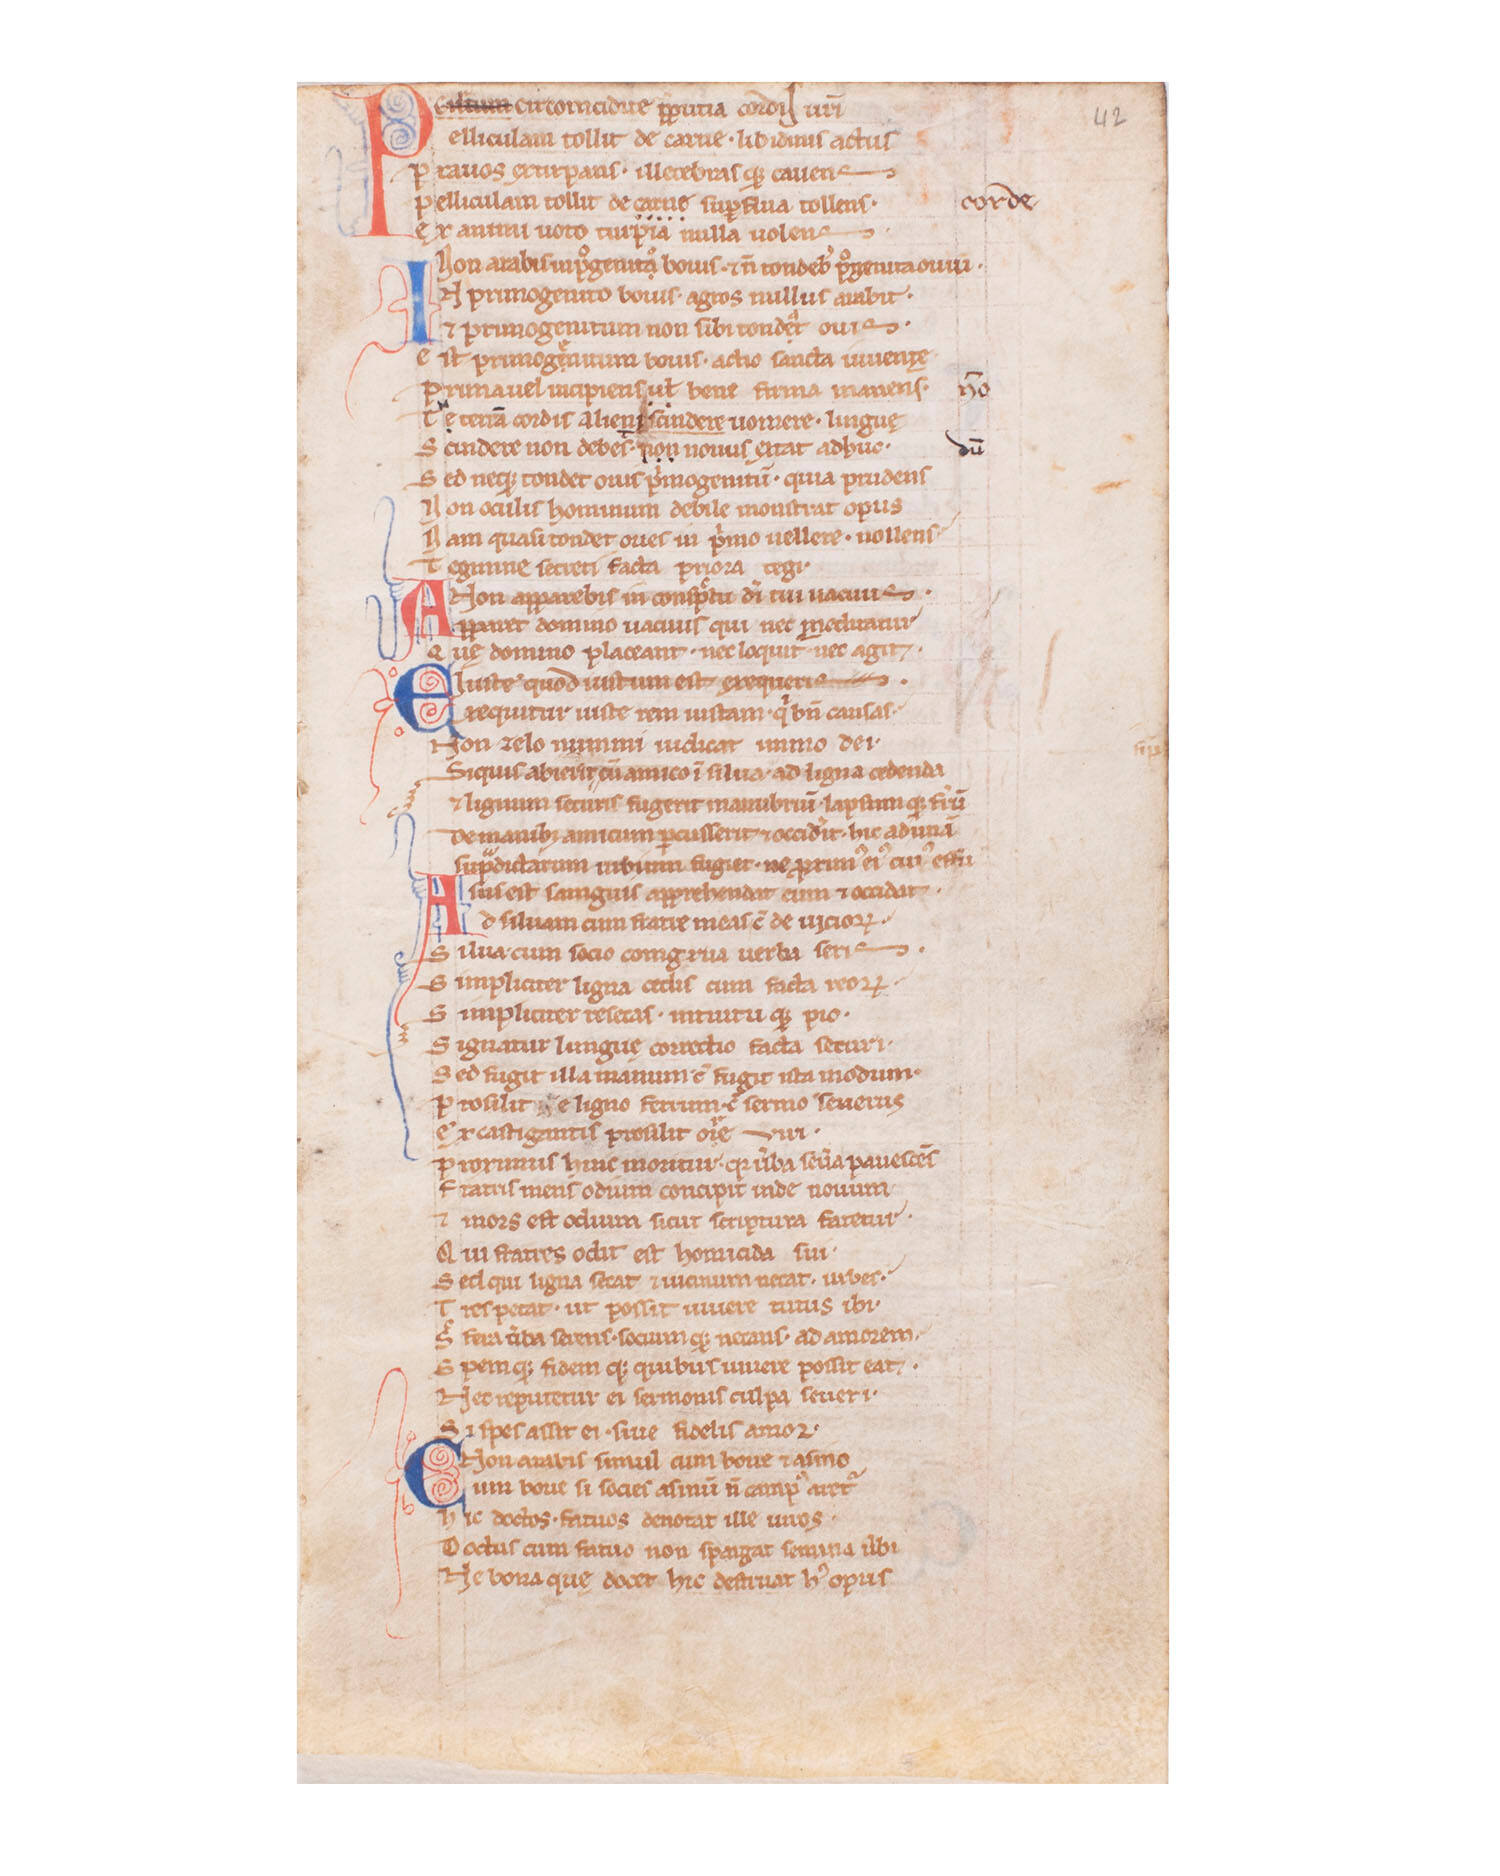 42
circumcidite p̄putia cordis ur̄i
Pelliculam tollit de carne · libidinis actus
prauos extirpans · illecebras q; cauens
pelliculam tollit de carne sup̄flua tollens · corde
ex animi uoto turpia nulla uolens ·
Non arabis in p̊genito bouis · ⁊ n̄ tondeb' p̊genita ouiū ·
IN primogenito bouis · agros nullus arabit ·
⁊ primogenitum non sibi tondet ouis ·
est primogenitum bouis · actio sancta iuuentę
prima uel incipiens ul̄ bene firma manens · n̄o
Te terrā cordis alieni scindere uomere · linguę
Scindere non debes · non nouus extat adhuc · dū
Sed neq; tondet ouis p'mogenitū · quia prudens
Non oculis hominum debile monstrat opus
Nam quasi tondet oues in p'mo uellere · nollens
Tegmine secreti facta priora tegi ·
Non apparebis in conspectu dn̄i tui uacuus ·
Apparet domino uacuus qui nec meditatur
Quę domino placeant · nec loquit' nec agit ·
Iuste quod iustum est exequeris ·
Exequitur iuste rem iustam · q' bn̄ causas ·
Non zelo nummi iudicat immo dei ·
Siquis abierit cū amico ī silua · ad ligna cedenda
⁊ lignum securis fugerit manubriū · lapsum q; ferrū
De manib; amicum p̄cusserit ⁊ occid'it · hic ad unā
sup̄dictarum urbium fugiet · ne proxim' ei' cui' effu
sus est sanguis apprehendat eum ⁊ occidat ·
Ad siluam cum fratre meas c̄ de uicioꝝ ·
Silua · cum socio congrua uerba seris ·
Simpliciter ligna cedis cum facta reoꝝ ·
Simpliciter resecas · intuitu q; pio ·
Signatur linguę correctio facta securi ·
Sed fugit illa manum · c̄ fugit ista modum ·
Prosilit e ligno ferrum · c̄ sermo seuerus
ex castigantis prosilit ore uiri ·
proximus hinc moritur · q; u'ba seu'a pauescēs
Fratris mens odium concipit inde nouum
⁊ mors est odium sicut scriptura fatetur ·
Qui fratres odit est homicida sui ·
Sed qui ligna secat ⁊ uicinum necat · urbes ·
Tres petat · ut possit uiuere tutus ibi ·
Sꝰ fera u'ba serens · socium q; necans · ad amorem ·
Spem q; fidem q; quibus uiuere possit eat ·
Nec reputetur ei sermonis culpa seueri ·
Si spes assit ei · siue fidelis amor ·
Non arabis simul cum boue ⁊ asino
Cum boue si socies asinū n̄ camp' aret'
hic doctos · fatuos denotat ille uiros ·
Doctus cum fatuo non spargat semina u'bi
Ne bona quę docet hic destruat h' opus